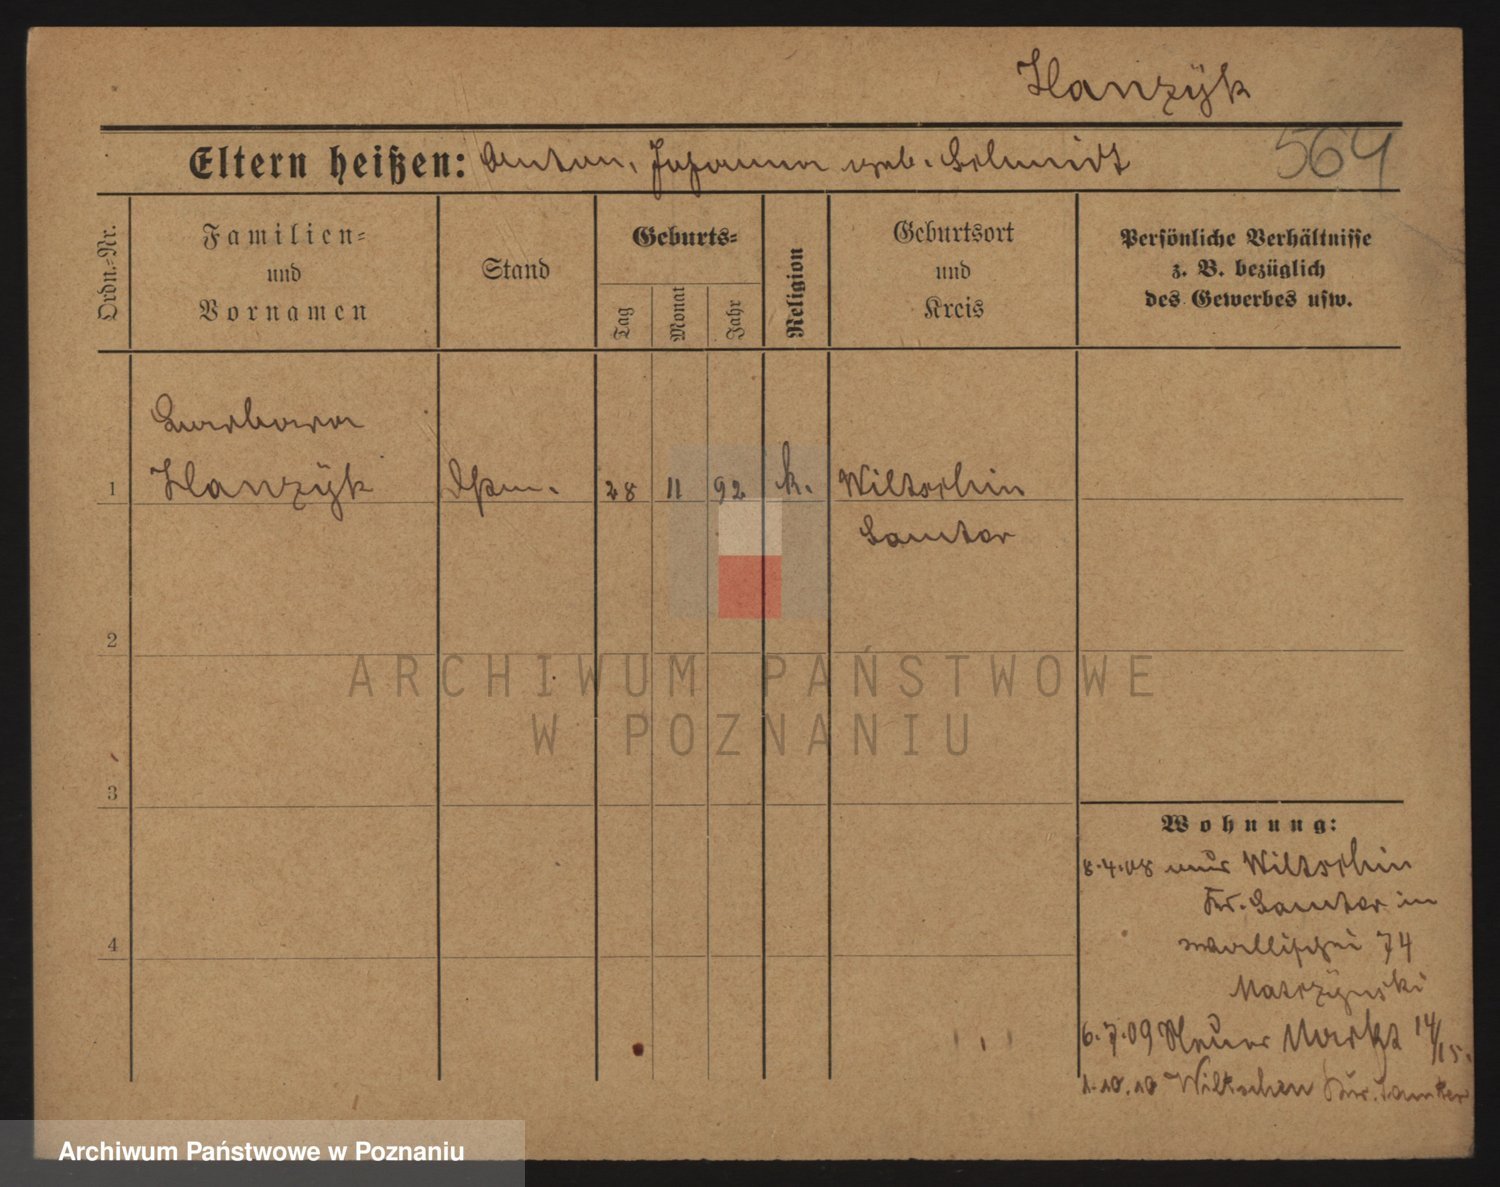 Hanzÿk
564
Eltern heißen: Anton, Johanna geb. Schmidt
Ordn.-Nr.
Familien-
und
Vornamen
Stand
Geburts-
Tag
Monat
Jahr
Religion
Geburtsort
und
Kreis
Persönliche Verhältnisse
z. B. bezüglich
des Gewerbes usw.
Barbara
1 Hanzÿk 28 11 92 k. Wiltschin
Samter
2
3
4
Wohnung:
8.4.08 aus Wiltschin
Kr. Samter in
Wallischei 74
6.7.09 Neuer Markt 14/15.
1.10.10 Wiltschin Kr. Samter
ARCHIWUM PAŃSTWOWE
W POZNANIU
Archiwum Państwowe w Poznaniu